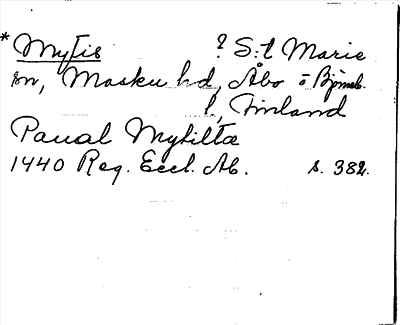 * Mytis ? S:t Marie
sn, Masku hd, Åbo o Bjömeb.
l, Finland
Paual Mytiltæ
1440 Reg. Eccl. Ab. s. 382.